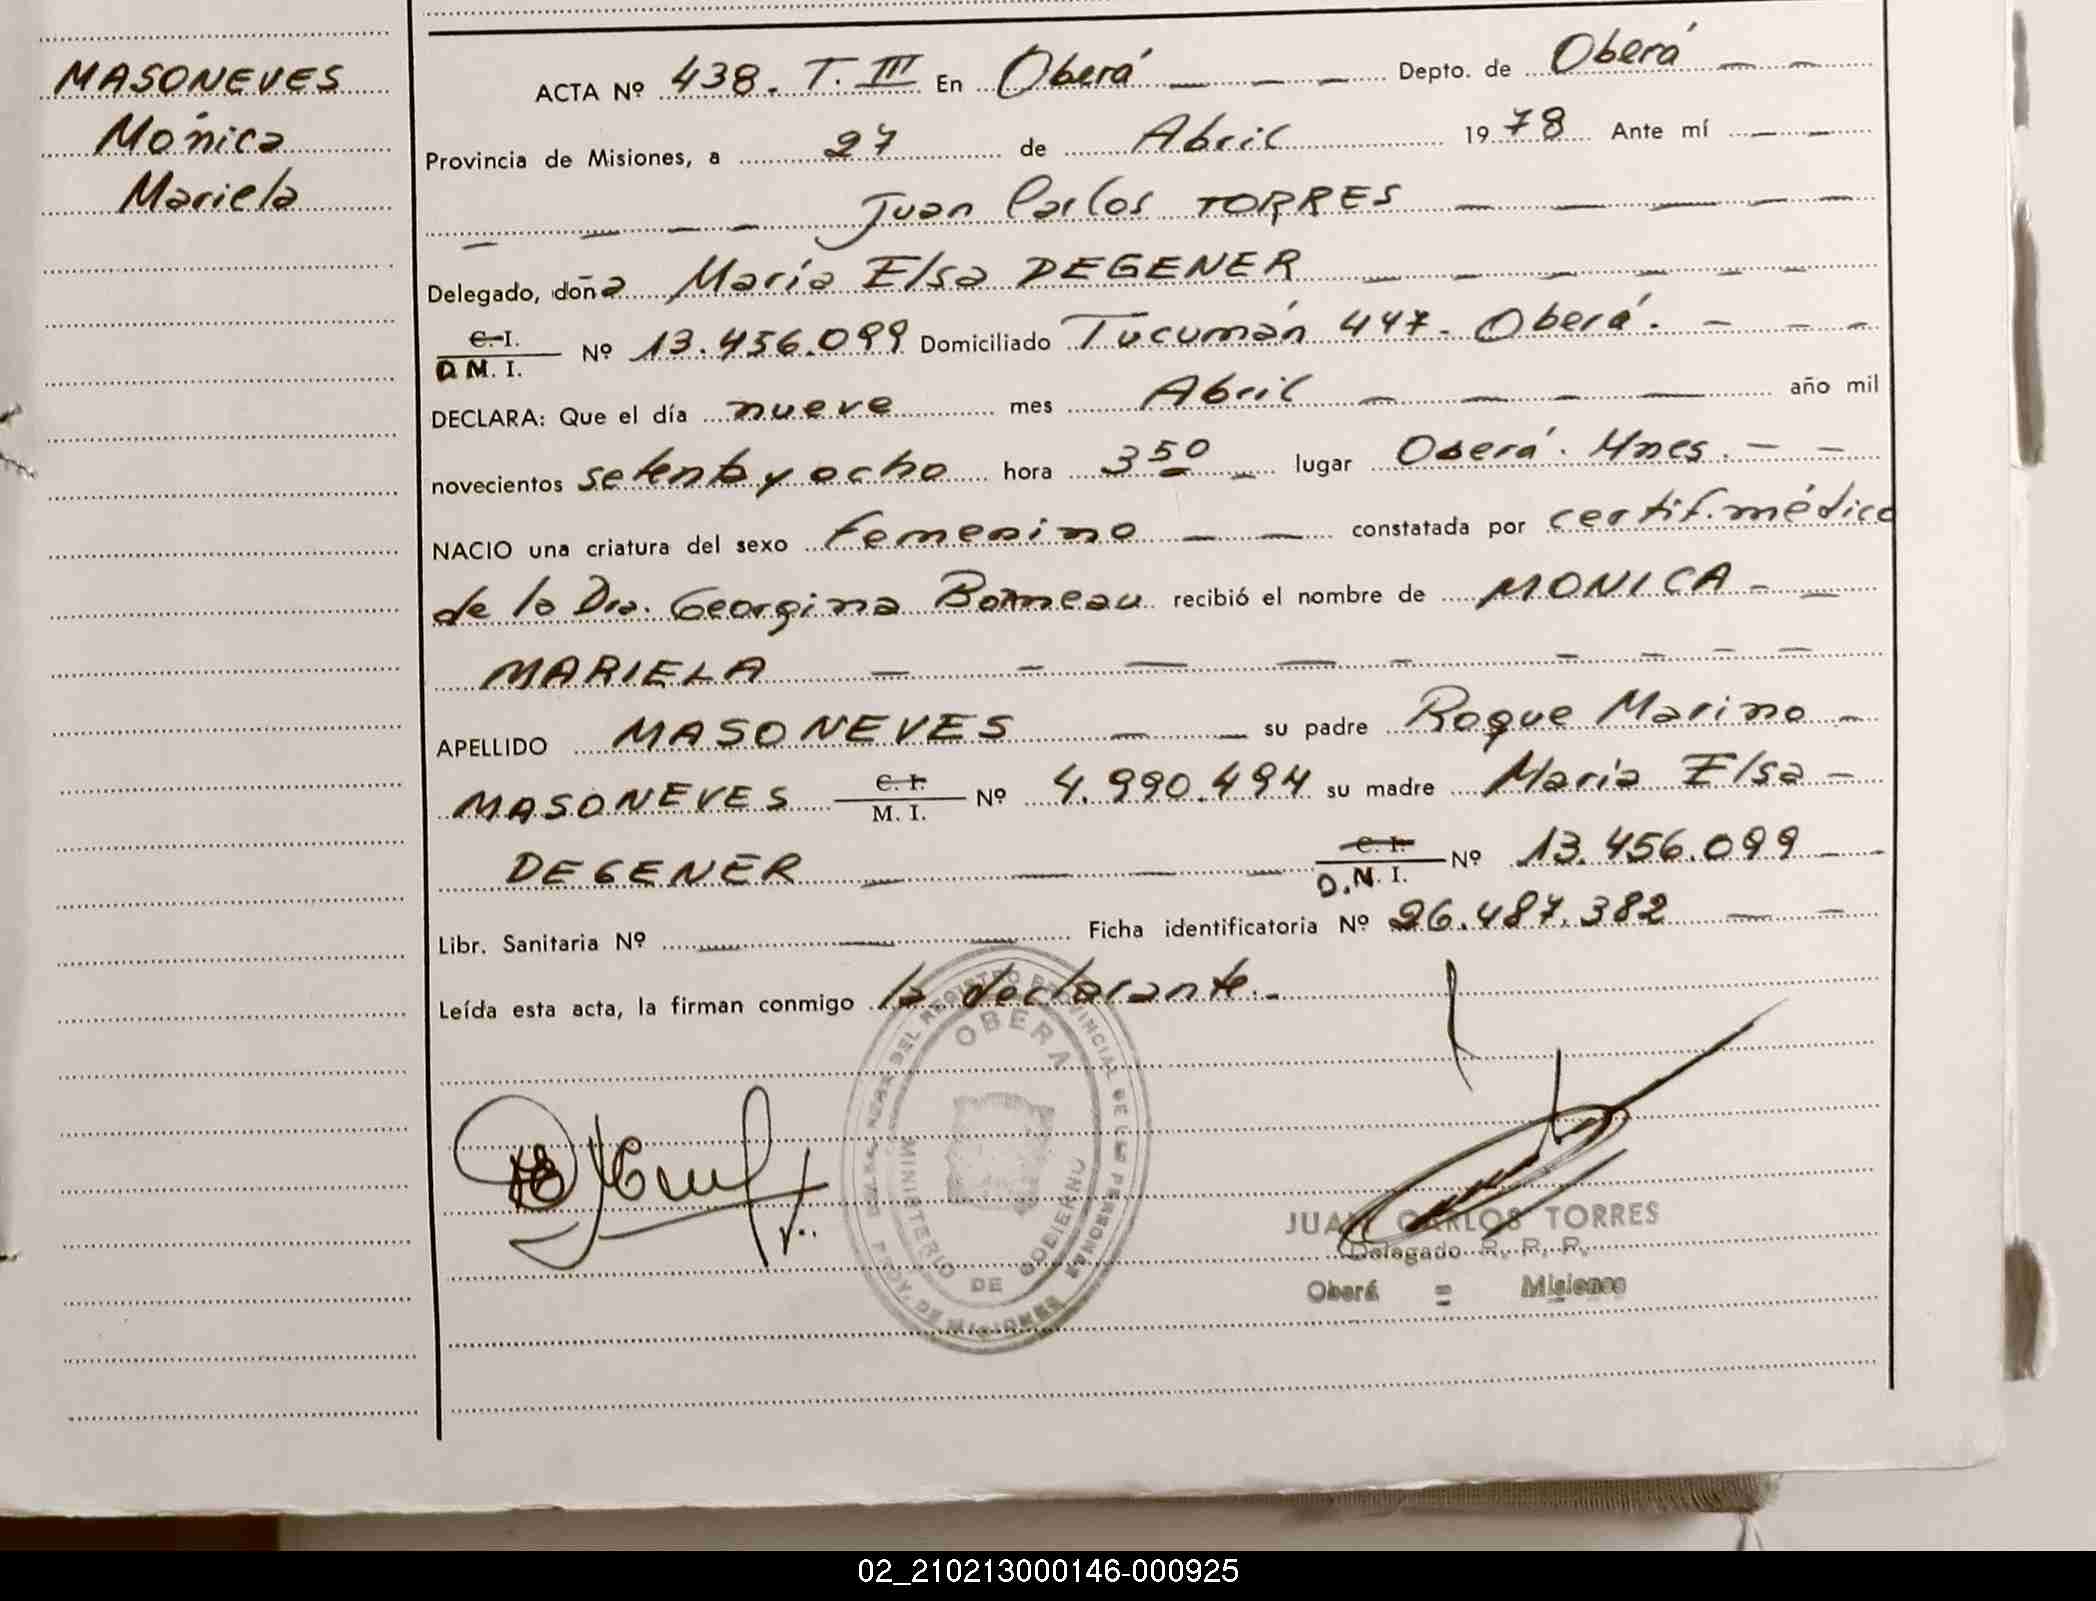 MASONEVES
Mónica
Mariela
ACTA Nº 438. T. III En Oberá Depto. de Oberá
Provincia de Misiones, a 27 de Abril 1978 Ante mí
Juan Carlos TORRES
Delegado, doña María Elsa DEGENER
C.I. D.M.I. Nº 13.456.099 Domiciliado Tucumán 447. Oberá.
DECLARA: Que el día nueve mes Abril año mil
novecientos setenta y ocho hora 3 50 lugar Oberá. Mnes.
NACIO una criatura del sexo femenino constatada por certif. médico
de la Dra. Georgina Bonneau recibió el nombre de MONICA
MARIELA
APELLIDO MASONEVES su padre Roque Marino
MASONEVES C.I. M.I. Nº 4.990.494 su madre María Elsa
DEGENER C.I. D.N.I. Nº 13.456.099
Libr. Sanitaria Nº Ficha identificatoria Nº 26.487.382
Leída esta acta, la firman conmigo la declarante.
OBERA
REGISTRO PROVINCIAL DE LAS PERSONAS
MINISTERIO DE GOBIERNO
PROV. DE MISIONES
JUAN CARLOS TORRES
Delegado R. P. P.
Oberá = Misiones
02_210213000146-000925